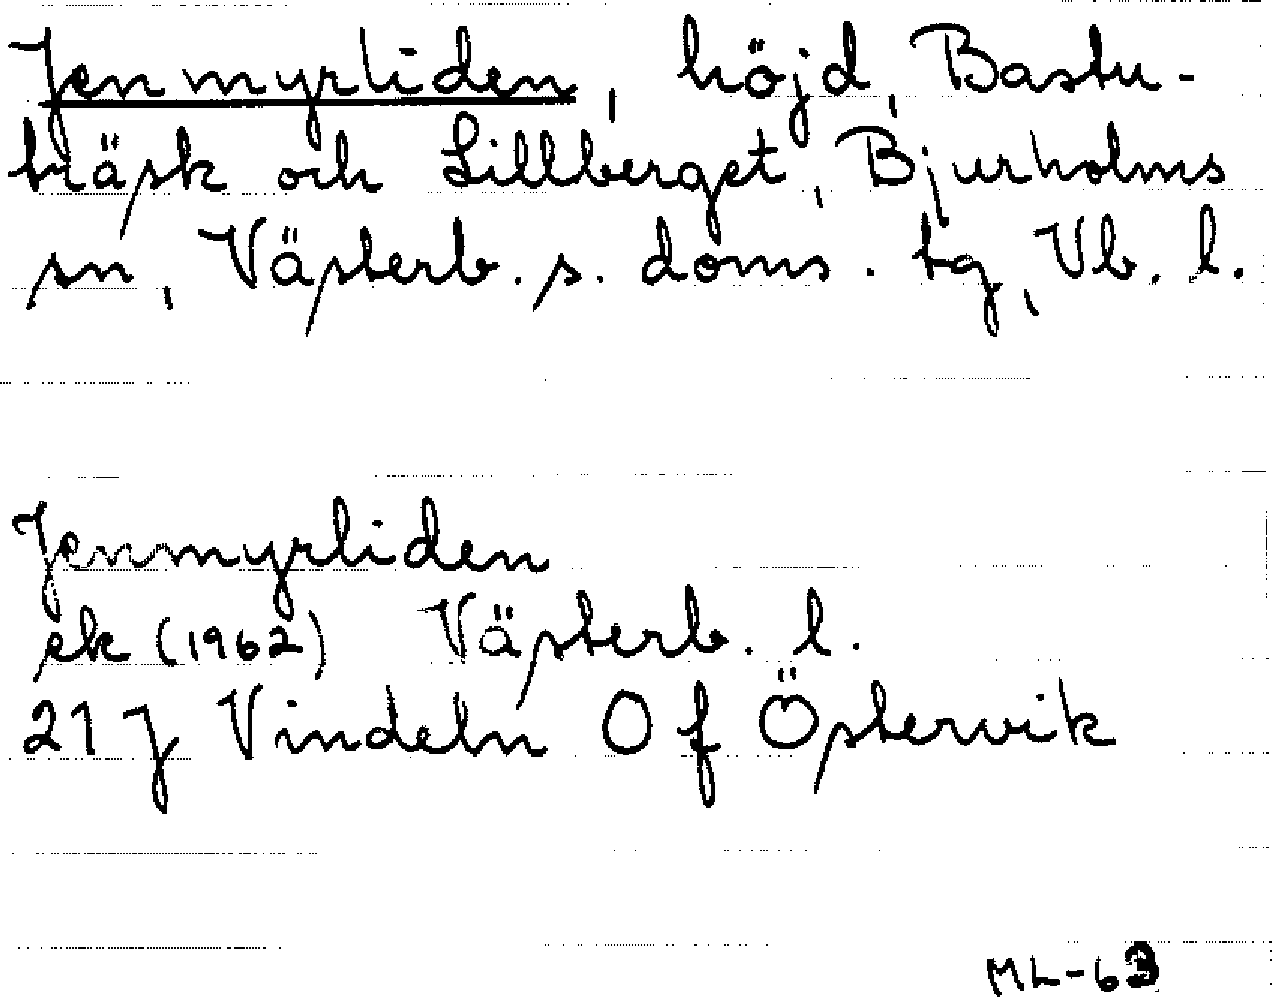 Jenmyrliden, höjd, Bastu-
träsk och Lillberget, Bjurholms
sn, Västerb. s. doms. tg, Vb. l.
Jenmyrliden
ek (1962) Västerb. l.
21 J Vindeln O f Östervik
ML-63